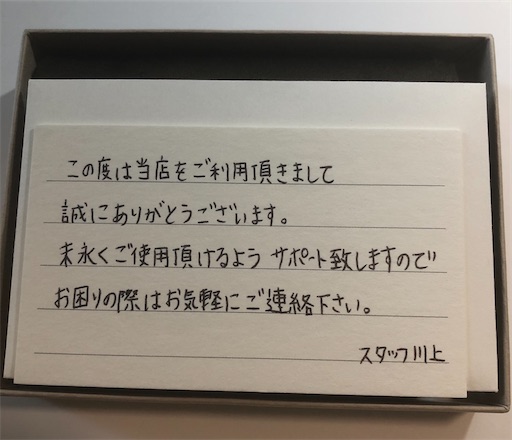 この度は当店をご利用頂きまして
誠にありがとうございます。
末永くご使用頂けるよう サポート致しますので
お困りの際はお気軽にご連絡下さい。
スタッフ川上